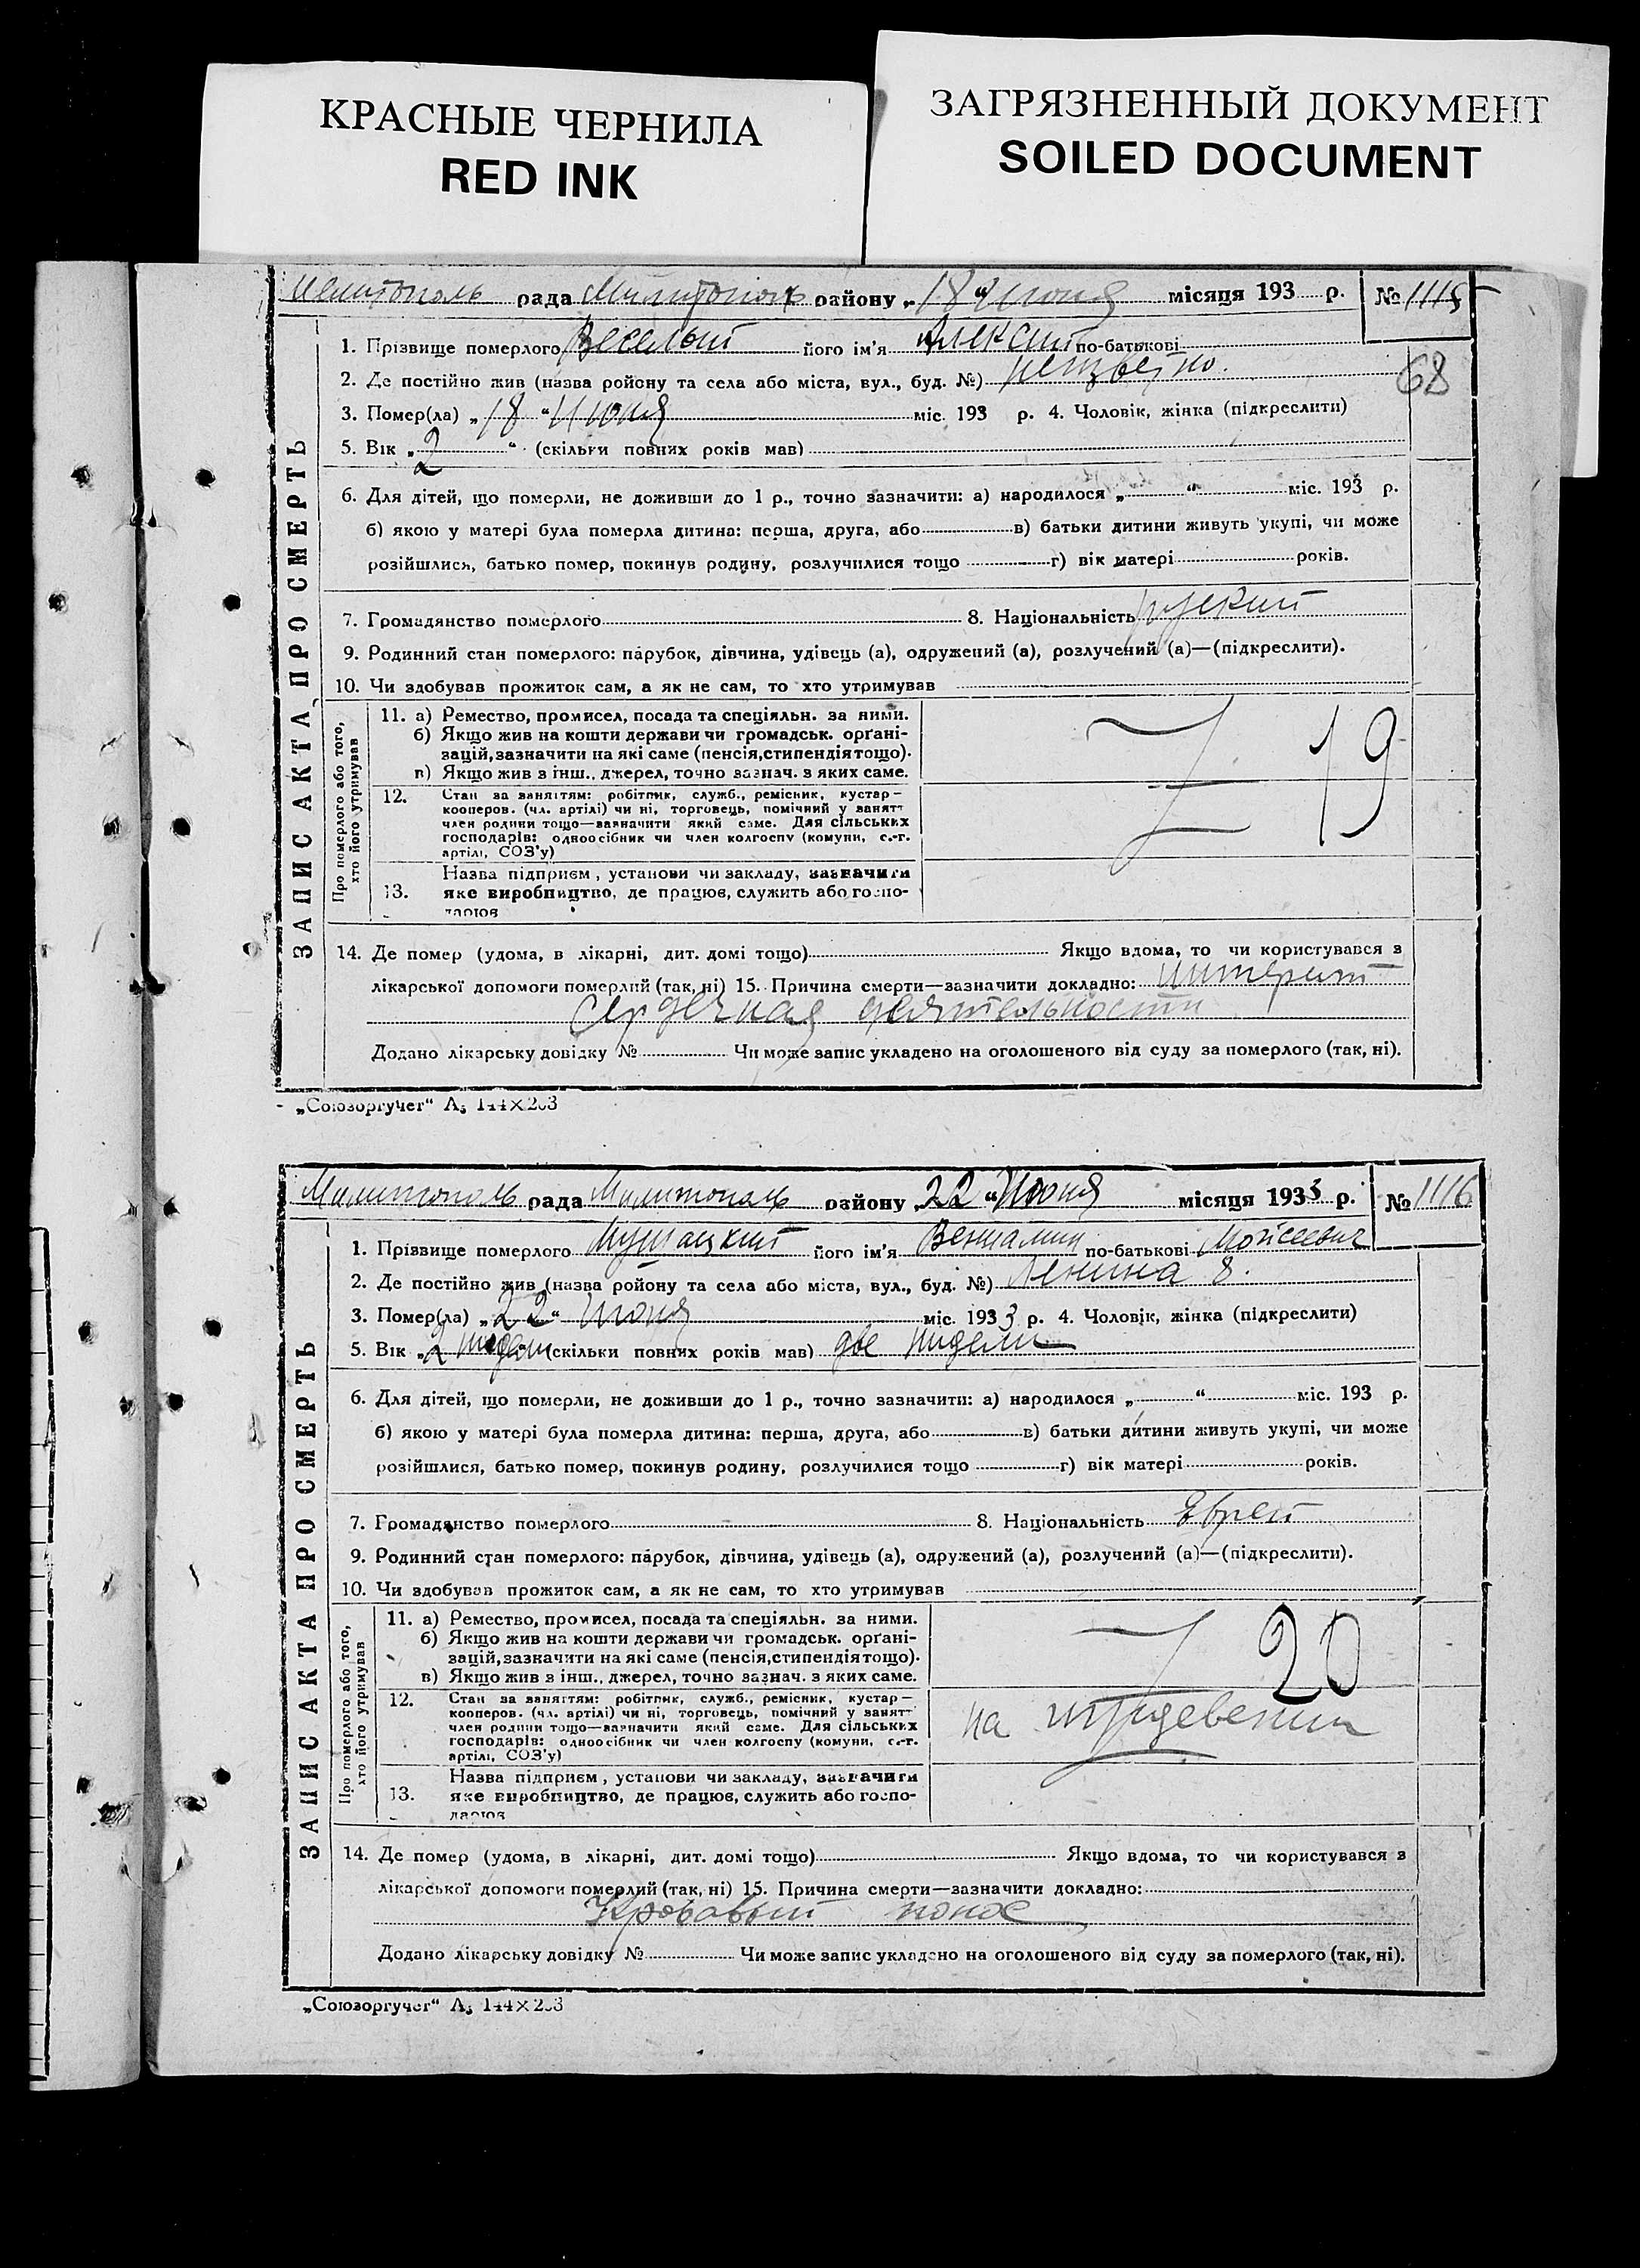 КРАСНЫЕ ЧЕРНИЛА
RED INK
ЗАГРЯЗНЕННЫЙ ДОКУМЕНТ
SOILED DOCUMENT
рада Милитополь району „18 “ Июня місяця 193 р. № 1115
68
ЗАПИС АКТА ПРО СМЕРТЬ
1. Прізвище померлого Веселый його ім'я Алексий по-батькові
2. Де постійно жив (назва ройону та села або міста, вул., буд. №)
3. Помер(ла) „18 “ Июня міс. 193 р. 4. Чоловік, жінка (підкреслити)
5. Вік „ 2 “ (скільки повних років мав)
6. Для дітей, що померли, не доживши до 1 р., точно зазначити: а) народилося „ “ міс. 193 р.
б) якою у матері була померла дитина: перша, друга, або в) батьки дитини живуть укупі, чи може
розійшлися, батько помер, покинув родину, розлучилися тощо г) вік матері років.
7. Громадянство померлого 8. Національність
9. Родинний стан померлого: парубок, дівчина, удівець (а), одружений (а), розлучений (а)—(підкреслити).
10. Чи здобував прожиток сам, а як не сам, то хто утримував
Про померлого або того, хто його утримував
11. а) Ремество, промисел, посада та спеціяльн. за ними.
б) Якщо жив на кошти держави чи громадськ. орґані-
зацій, зазначити на які саме (пенсія, стипендія тощо).
в) Якщо жив з інш., джерел, точно зазнач. з яких саме.
19
12. Стан за заняттям: робітник, служб., ремісник, кустар—
кооперов. (чл. артілі) чи ні, торговець, помічний у занятт
член родини тощо—зазначити який саме. Для сільських
господарів: одноосібник чи член колгоспу (комуни, с.-г.
артілі, СОЗ'у)
13. Назва підприєм, установи чи закладу, зазначити
яке виробництво, де працює, служить або госпо-
дарює
14. Де помер (удома, в лікарні, дит. домі тощо) Якщо вдома, то чи користувався з
лікарської допомоги померлий (так, ні) 15. Причина смерти—зазначити докладно:
сердечная деятельности
Додано лікарську довідку № Чи може запис укладено на оголошеного від суду за померлого (так, ні).
„Союзоргучег“ А5 144×203
Милитополь рада Милитополь району „22 “ Июня місяця 1933 р. № 1116
ЗАПИС АКТА ПРО СМЕРТЬ
1. Прізвище померлого його ім'я Вениамин по-батькові Мойсеевич
2. Де постійно жив (назва ройону та села або міста, вул., буд. №) Ленина 8.
3. Помер(ла) „22“ Июня міс. 1933 р. 4. Чоловік, жінка (підкреслити)
5. Вік „2 нидели (скільки повних років мав) две нидели
6. Для дітей, що померли, не доживши до 1 р., точно зазначити: а) народилося „ “ міс. 193 р.
б) якою у матері була померла дитина: перша, друга, або в) батьки дитини живуть укупі, чи може
розійшлися, батько помер, покинув родину, розлучилися тощо г) вік матері років.
7. Громадянство померлого 8. Національність Еврей
9. Родинний стан померлого: парубок, дівчина, удівець (а), одружений (а), розлучений (а)—(підкреслити).
10. Чи здобував прожиток сам, а як не сам, то хто утримував
Про померлого або того, хто його утримував
11. а) Ремество, промисел, посада та спеціяльн. за ними.
б) Якщо жив на кошти держави чи громадськ. орґані-
зацій, зазначити на які саме (пенсія, стипендія тощо).
в) Якщо жив з інш., джерел, точно зазнач. з яких саме.
20
12. Стан за заняттям: робітник, служб., ремісник, кустар—
кооперов. (чл. артілі) чи ні, торговець, помічний у занятт
член родини тощо—зазначити який саме. Для сільських
господарів: одноосібник чи член колгоспу (комуни, с.-г.
артілі, СОЗ'у)
на
13. Назва підприєм, установи чи закладу, зазначити
яке виробництво, де працює, служить або госпо-
дарює
14. Де помер (удома, в лікарні, дит. домі тощо) Якщо вдома, то чи користувався з
лікарської допомоги померлий (так, ні) 15. Причина смерти—зазначити докладно:
Кровавый понос
Додано лікарську довідку № Чи може запис укладено на оголошеного від суду за померлого (так, ні).
„Союзоргучег“ А5 144×203